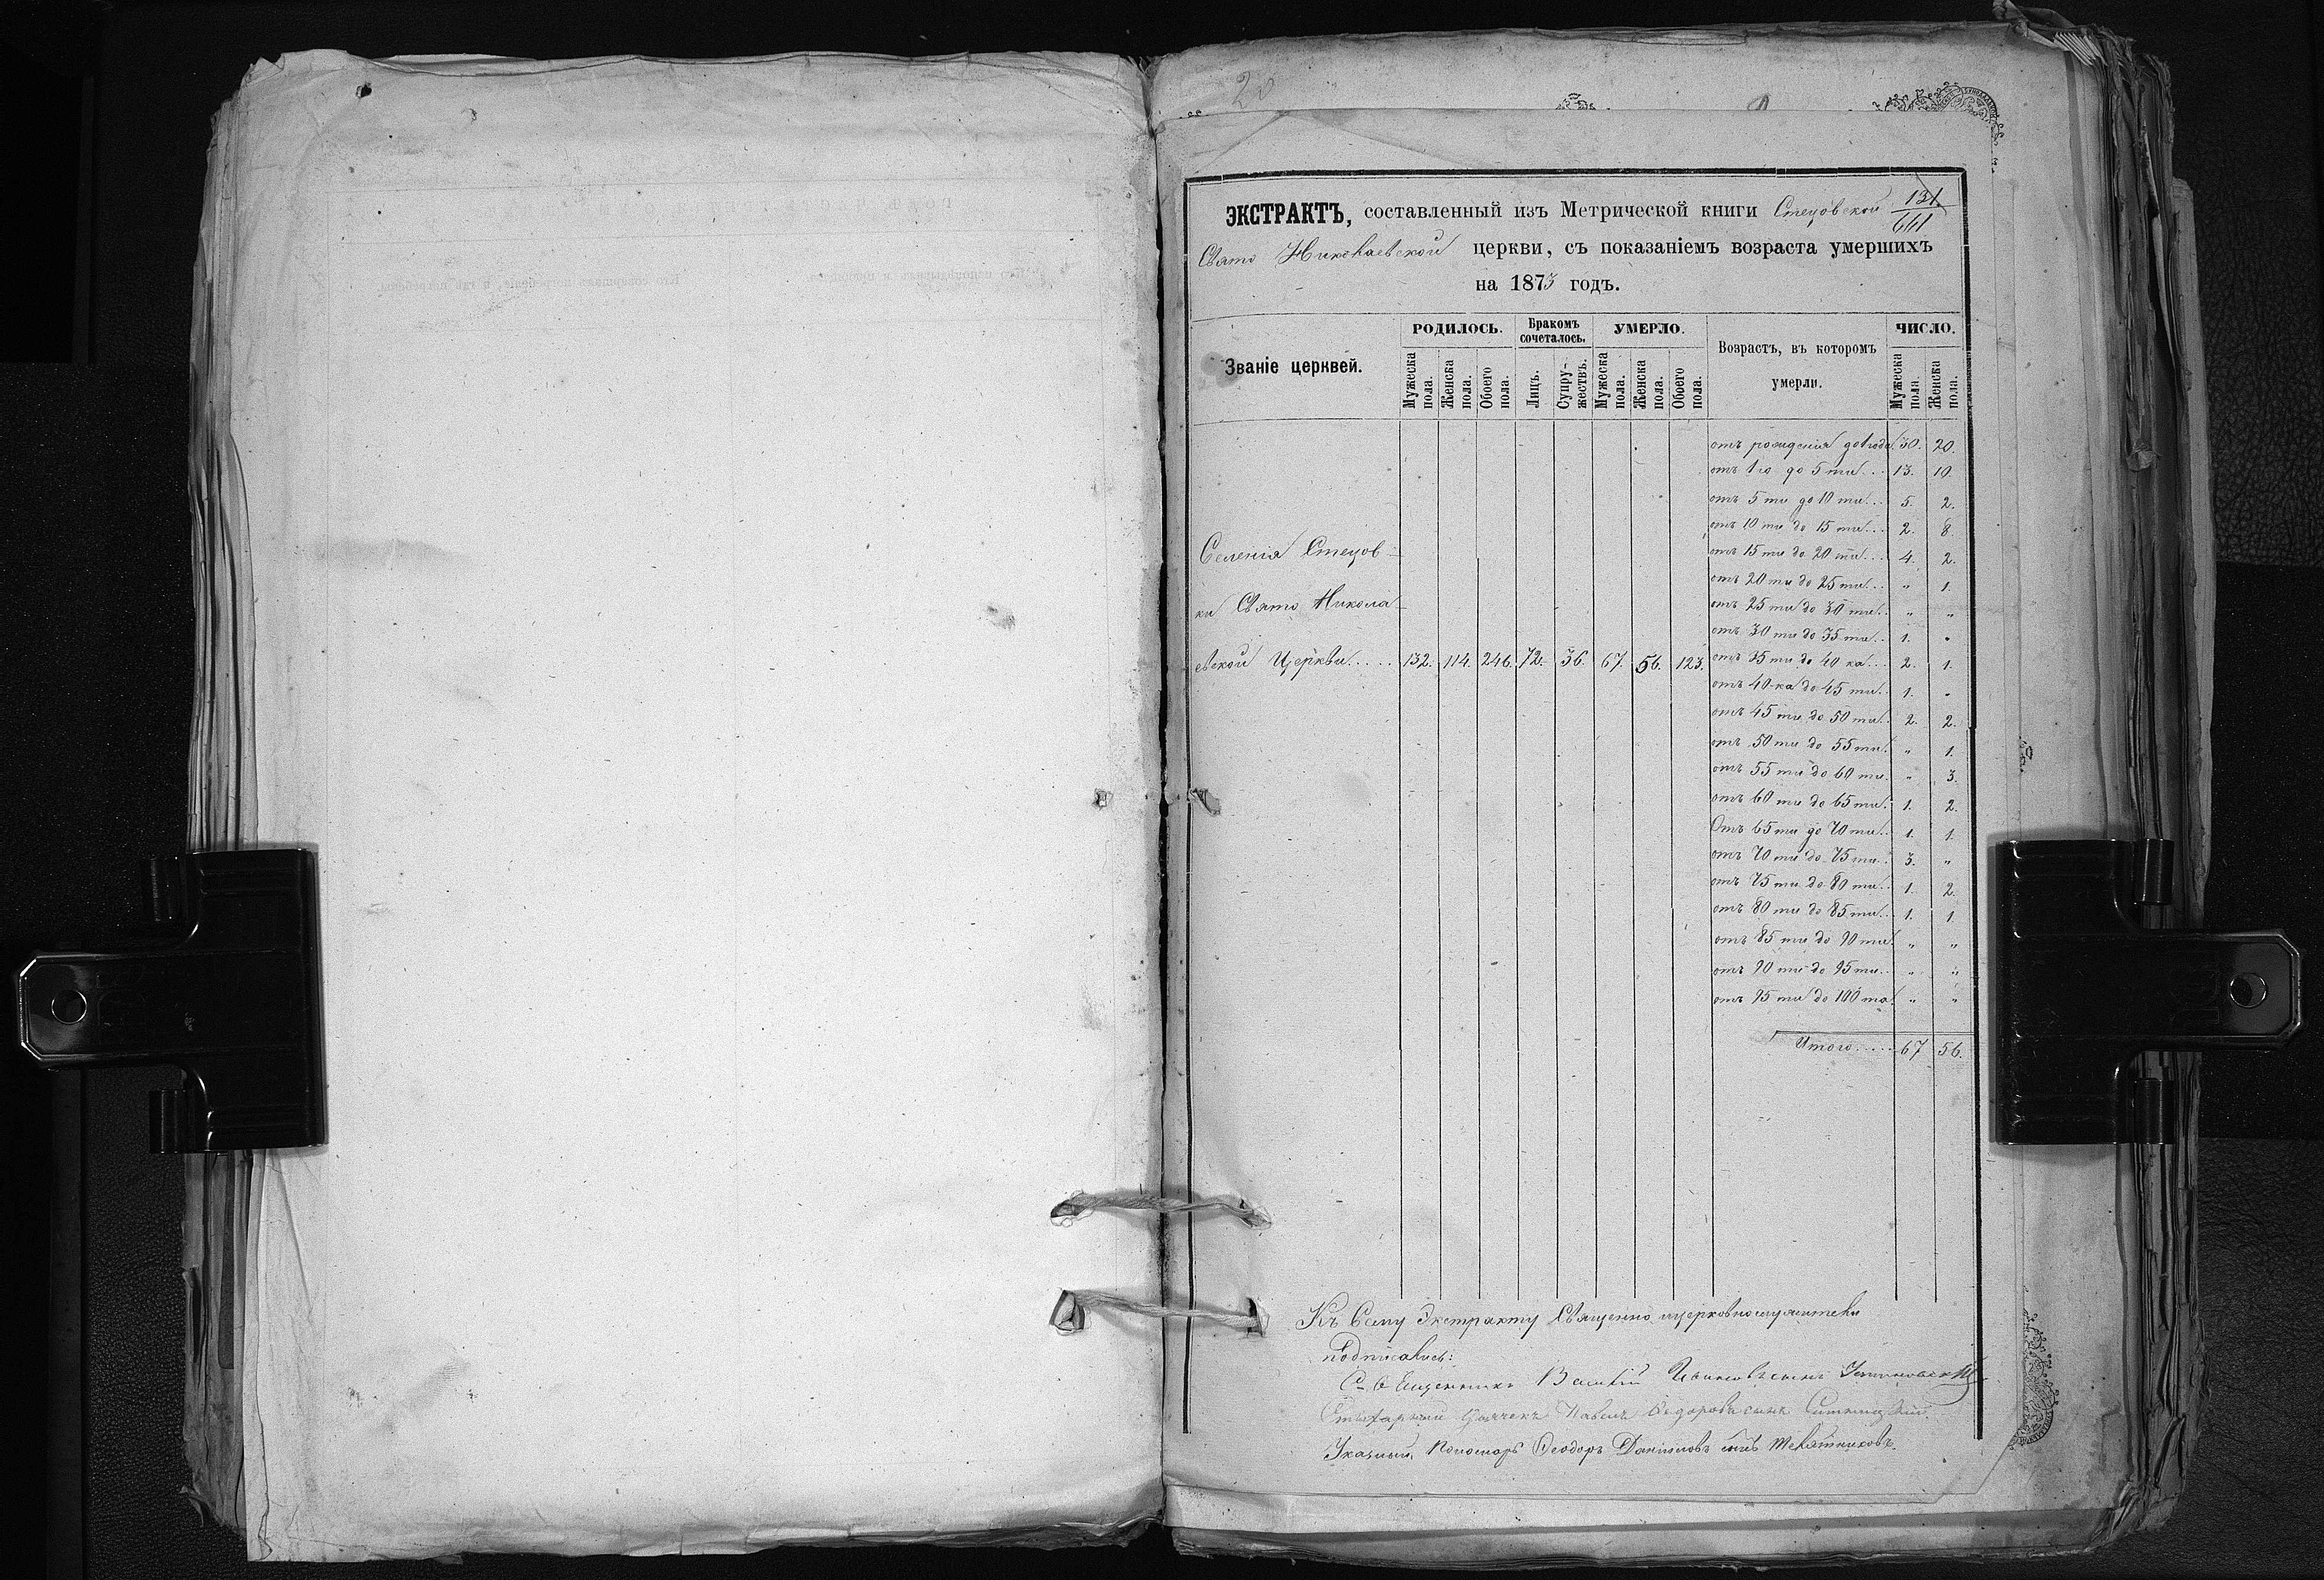 20
131.
661
ЭКСТРАКТЪ, составленный изъ Метрической книги Стецовской
Свято Николаевской церкви, съ показаніемъ возраста умершихъ
на 1873 годъ.
Званіе церквей.
РОДИЛОСЬ.
Бракомъ сочеталось.
УМЕРЛО.
Возрастъ, въ которомъ умерли.
ЧИСЛО.
Мужеска пола.
Женска пола.
Обоего пола.
Лицъ.
Супружествъ.
Мужеска пола.
Женска пола.
Обоего пола.
Мужеска пола.
Женска пола.
отъ рожденія до 1 года 30. 20.
отъ 1 го до 5 ти... 13. 10.
отъ 5 ти до 10 ти... 5. 2.
отъ 10 ти до 15 ти... 2. 8.
Селенія Стецов-
отъ 15 ти до 20 ти... 4. 2.
отъ 20 ти до 25 ти... " 1.
ки Свято Никола-
отъ 25 ти до 30 ти.. " "
отъ 30 ти до 35 ти.. 1. "
евской Церкви..... 132. 114. 246. 72. 36. 67. 56. 123. отъ 35 ти до 40 ка... 2. 1.
отъ 40-ка до 45 ти.. 1. "
отъ 45 ти до 50 ти.. 2. 2.
отъ 50 ти до 55 ти. " 1.
отъ 55 ти до 60 ти. " 3.
отъ 60 ти до 65 ти. 1. 2.
Отъ 65 ти до 70 ти.. 1. 1.
отъ 70 ти до 75 ти.. 3. "
отъ 75 ти до 80 ти.. 1. 2.
отъ 80 ти до 85 ти.. 1. 1.
отъ 85 ти до 90 ти. " "
отъ 90 ти до 95 ти.. " "
отъ 95 ти до 100 та. " "
Итого.... 67 56.
Къ Сему Экстракту Священно церковнослужители
подписались:
Священникъ Василій Ивановъ сынъ
Павелъ Федоровъ сынъ
Указный Пономарь Феодоръ Данииловъ сынъ